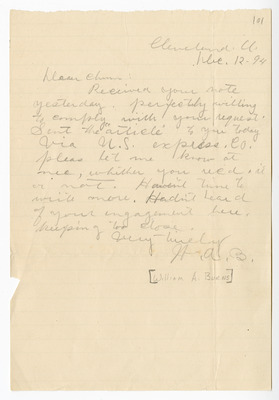 101
Cleveland O.
Dec. 12-94
Dear Chum:
Received your note
yesterday. perfectly willing
to comply with your request.
Sent the "article" to you today
Via U.S. express. Co.
pleas let me know at
once, whither you recd. it
or not. Haven't time to
write more. Hadn't heard
of your engagement here.
to close.
Very truly
W. A. B.
[William A. Burns]